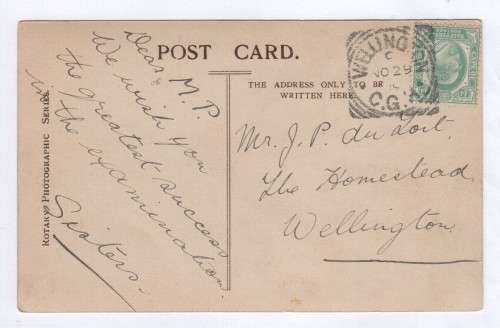 POST CARD.
Dear M. P.
We wish you
the greatest success
in the examination.
Sisters.
THE ADDRESS ONLY TO BE
WRITTEN HERE.
Mr. J. P. du Toit.
The Homestead
Wellington
WELLINGTON
C
NO 29
C.G.H.
ROTARY PHOTOGRAPHIC SERIES.